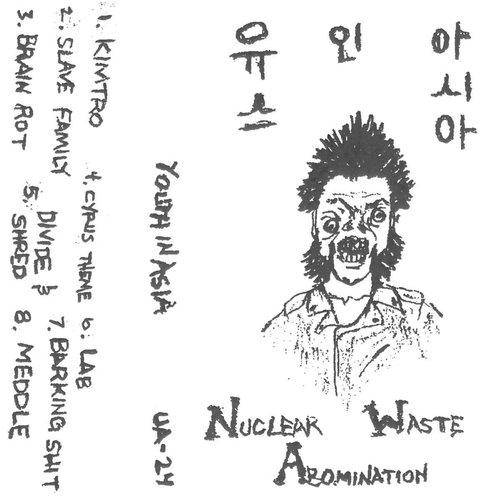 유스
인
아시아
NUCLEAR WASTE
ABOMINATION
YOUTH IN ASIA UA-24
1. KIMTRO
2. SLAVE FAMILY
3. BRAIN ROT
4. CYRUS THEME
5. DIVIDE &
SHRED
6. LAB
7. BARKING SHIT
8. MEDDLE